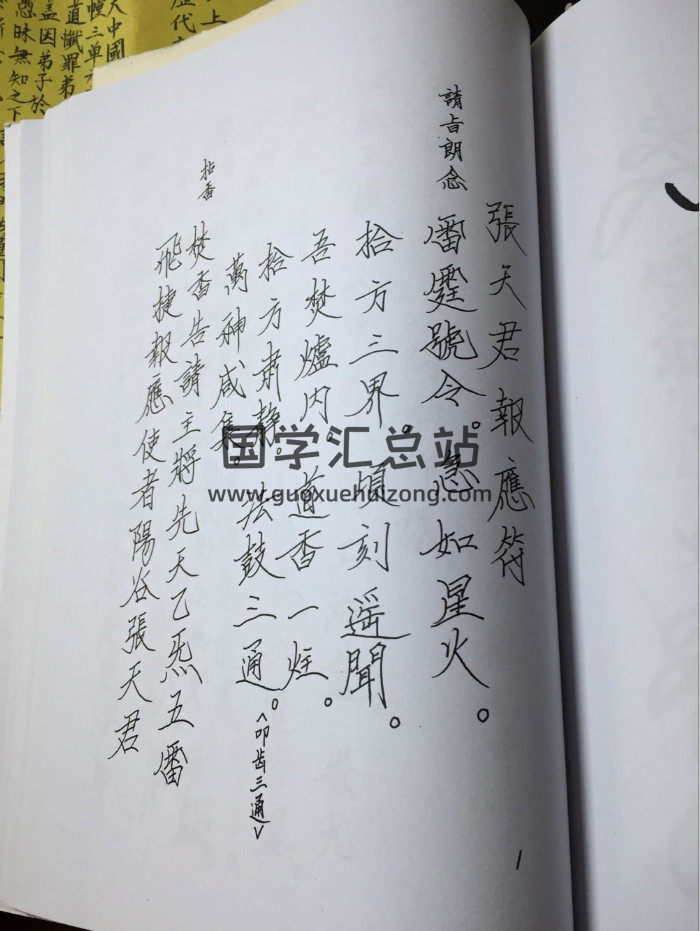 張天君報應符
請旨朗念
雷霆號令。急如星火。
拾方三界。頃刻遥聞。
吾焚爐内。道香一炷。
拾方肅静。法鼓三通。<叩齿三通>
萬神咸集。
拈香
焚香告請主將先天乙炁五雷
飛捷報應使者陽谷張天君
1
国学汇总站
www.guoxuehuizong.com
上
歷代
中國
道懺罪弟
盖因弟子於
愚昧無知之下